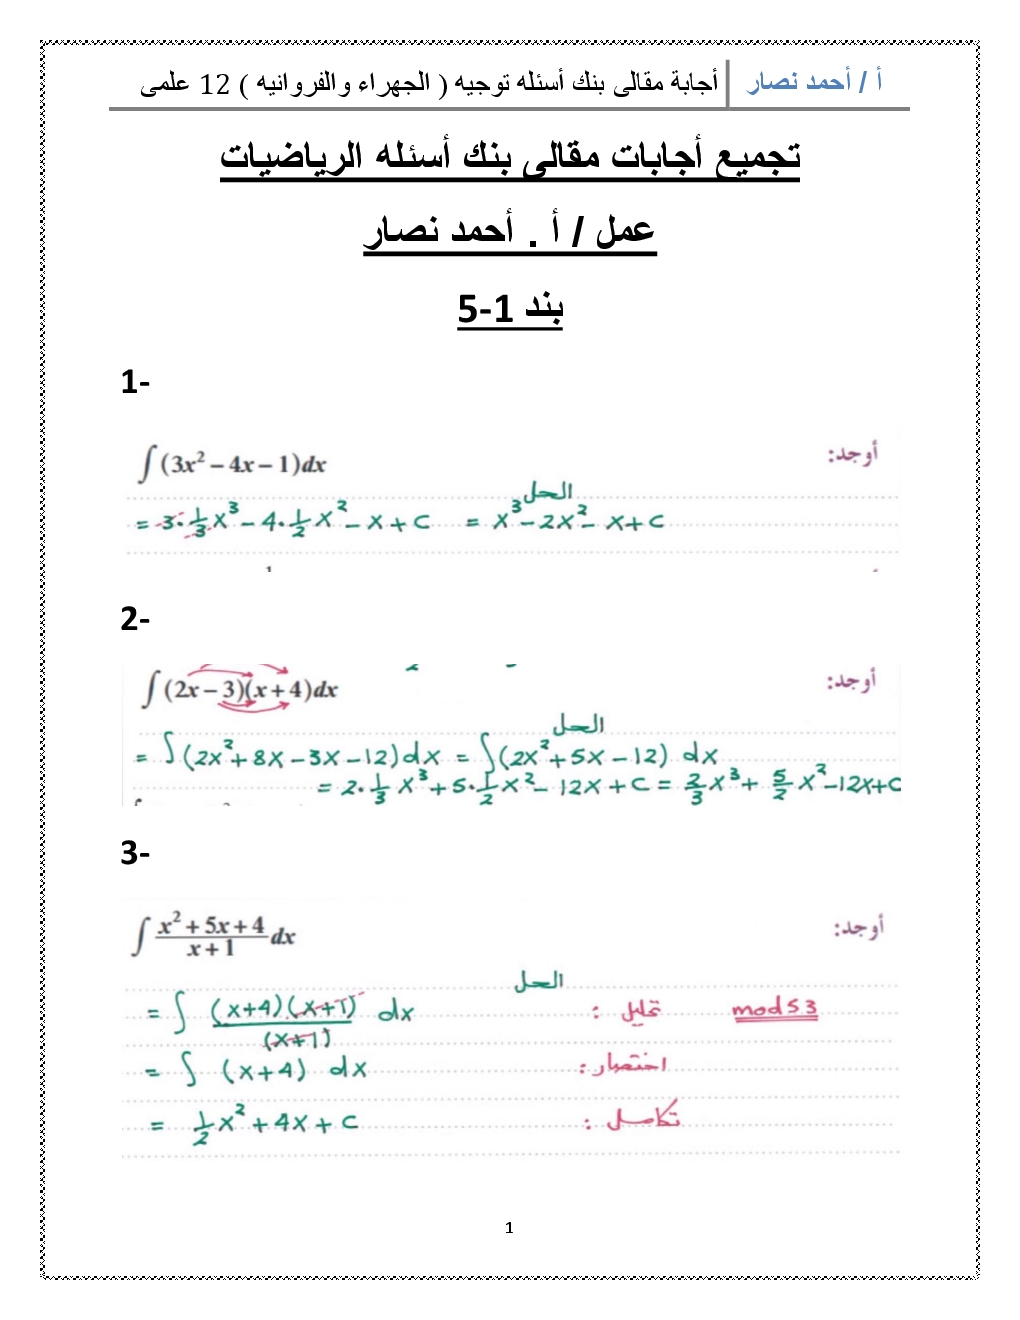 أ / أحمد نصار
أجابة مقالى بنك أسئله توجيه ( الجهراء والفروانيه ) 12 علمى
تجميع أجابات مقالى بنك أسئله الرياضيات
عمل / أ . أحمد نصار
بند 1-5
1-
أوجد: ∫(3x² – 4x – 1)dx
الحل
= 3·1/3 x³ – 4·1/2 x² – x + c = x³ – 2x² – x + c
2-
أوجد: ∫(2x – 3)(x + 4)dx
الحل
= ∫(2x² + 8x – 3x – 12)dx = ∫(2x² + 5x – 12) dx
= 2·1/3 x³ + 5·1/2 x² – 12x + c = 2/3 x³ + 5/2 x² – 12x + c
3-
أوجد: ∫ (x² + 5x + 4)/(x + 1) dx
الحل
= ∫ (x+4)(x+1)/(x+1) dx تحليل : mod 53
= ∫ (x+4) dx اختصار :
= 1/2 x² + 4x + c تكامل :
1